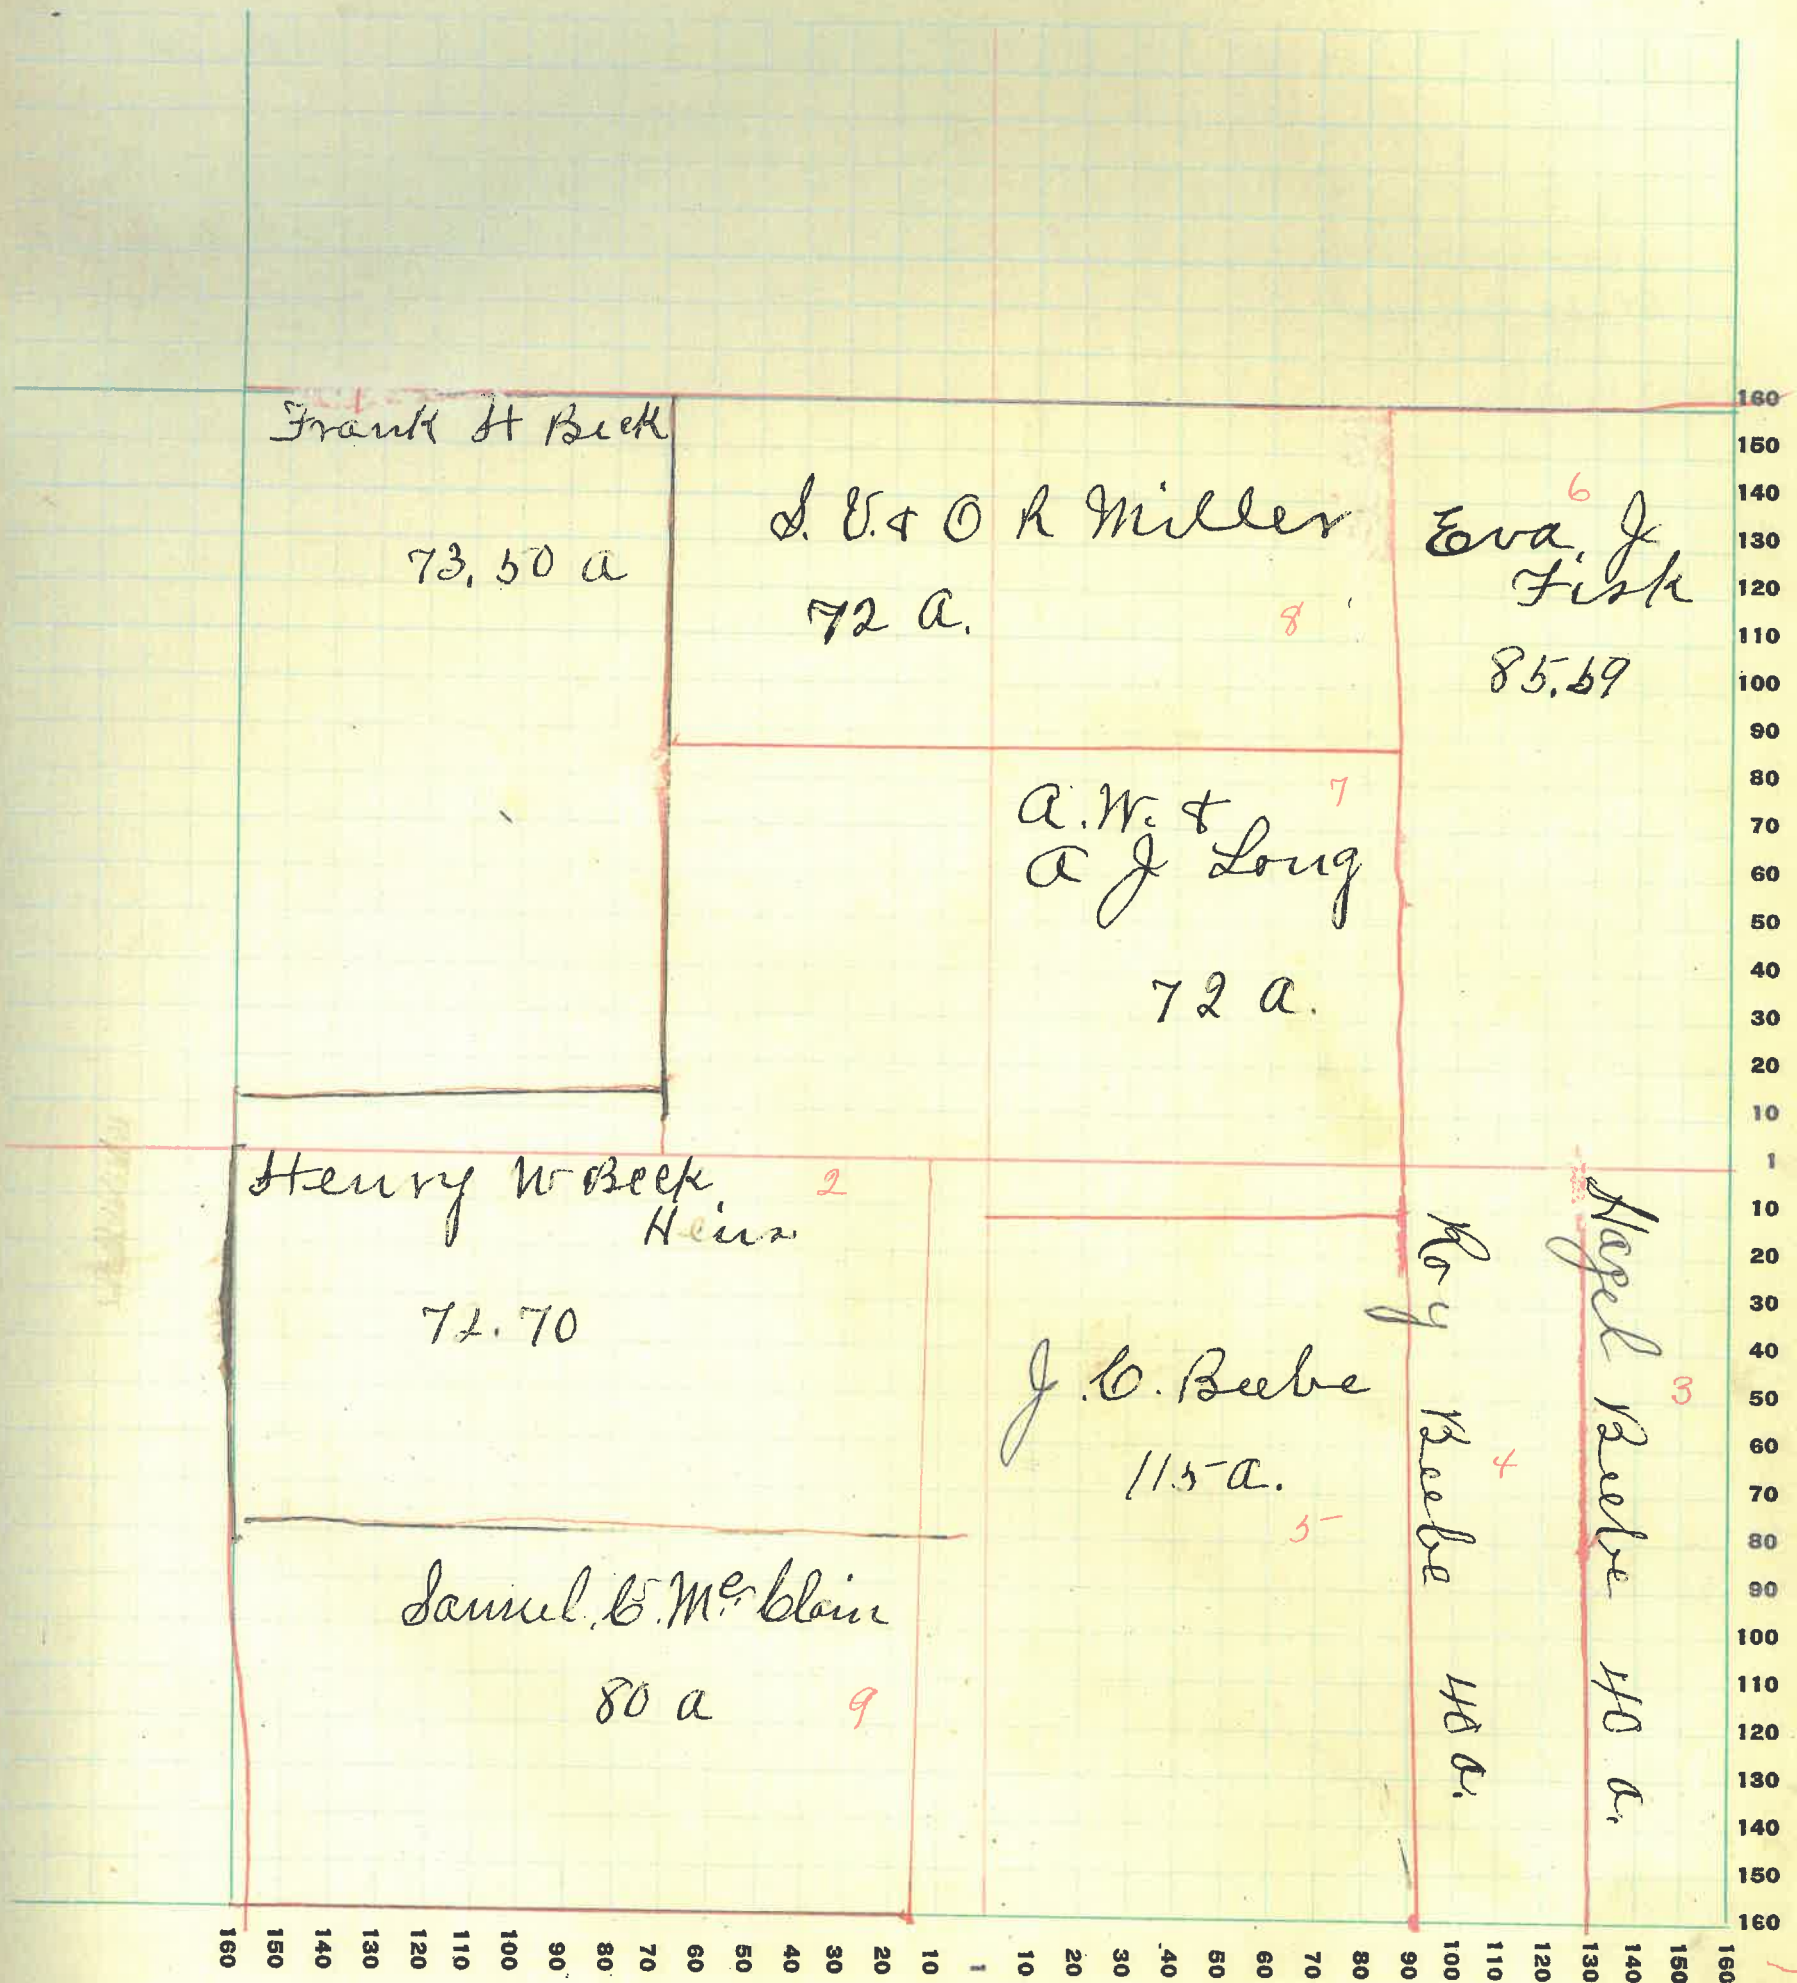 Frank H Beck
73.50 a
S. V. & O R Miller
72 a.
8
6
Eva. J.
Fisk
85.59
7
A. W. &
A J Long
72 a.
Henry W Beck
2
Heirs
72.70
J. C. Beebe
115 a.
5
Roy Beebe 40 a.
4
Hazel Beebe 40 a.
3
Samuel. C. McClain
80 a
9
160
150
140
130
120
110
100
90
80
70
60
50
40
30
20
10
1
10
20
30
40
50
60
70
80
90
100
110
120
130
140
150
160
160 150 140 130 120 110 100 90 80 70 60 50 40 30 20 10 1 10 20 30 40 50 60 70 80 90 100 110 120 130 140 150 160